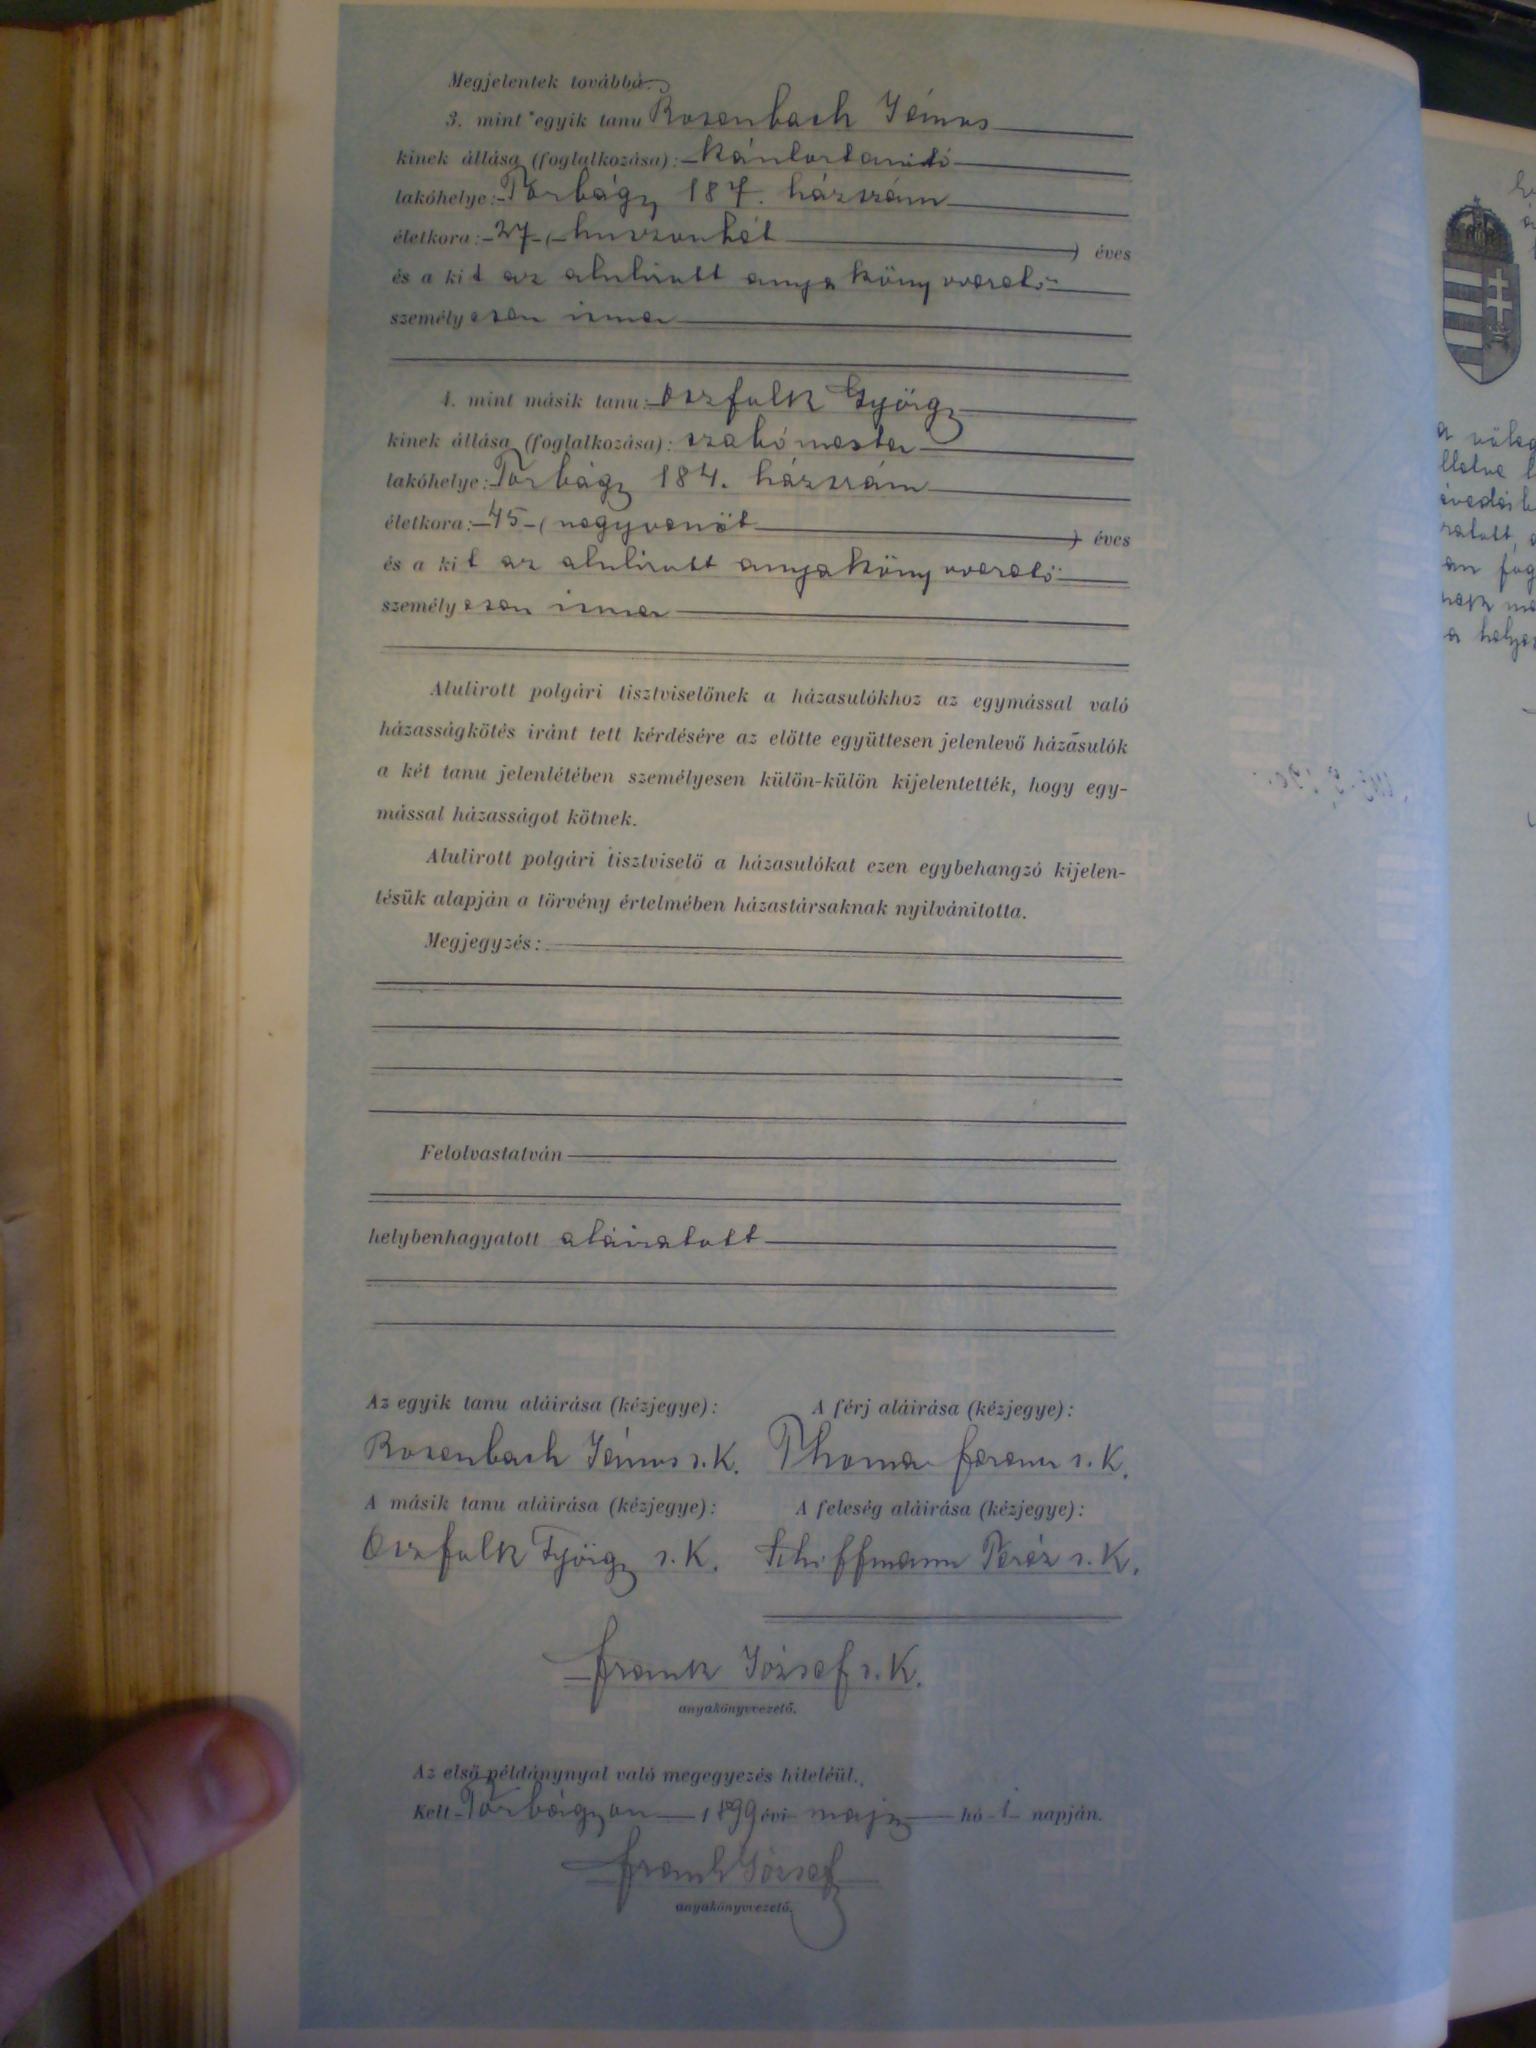 Megjelentek továbbá:
3. mint egyik tanu Rosenbach János
kinek állása (foglalkozása): kántortanító
lakóhelye: Torbágy 187. házszám
életkora: 27 (huszonhét ) éves
és a kit az alulirott anyakönyvvezető
személyesen ismer
4. mint másik tanu: Oszfolk György
kinek állása (foglalkozása): szabómester
lakóhelye: Torbágy 184. házszám
életkora: 45 (negyvenöt ) éves
és a kit az alulirott anyakönyvvezető
személyesen ismer
Alulirott polgári tisztviselőnek a házasulókhoz az egymással való
házasságkötés iránt tett kérdésére az előtte együttesen jelenlevő házasulók
a két tanu jelenlétében személyesen külön-külön kijelentették, hogy egy-
mással házasságot kötnek.
Alulirott polgári tisztviselő a házasulókat ezen egybehangzó kijelen-
tésük alapján a törvény értelmében házastársaknak nyilvánitotta.
Megjegyzés:
Felolvastatván
helybenhagyatott aláiratott
Az egyik tanu aláirása (kézjegye): A férj aláirása (kézjegye):
Rosenbach János s. k. Thoma Ferenc s. k.
A másik tanu aláirása (kézjegye): A feleség aláirása (kézjegye):
Oszfolk György s. k. Schiffmann Teréz s. k.
Frank József s. k.
anyakönyvvezető.
Az első példánynyal való megegyezés hiteléül.
Kelt Torbágyon 1899 évi máj hó 1 napján.
Frank József
anyakönyvvezető.